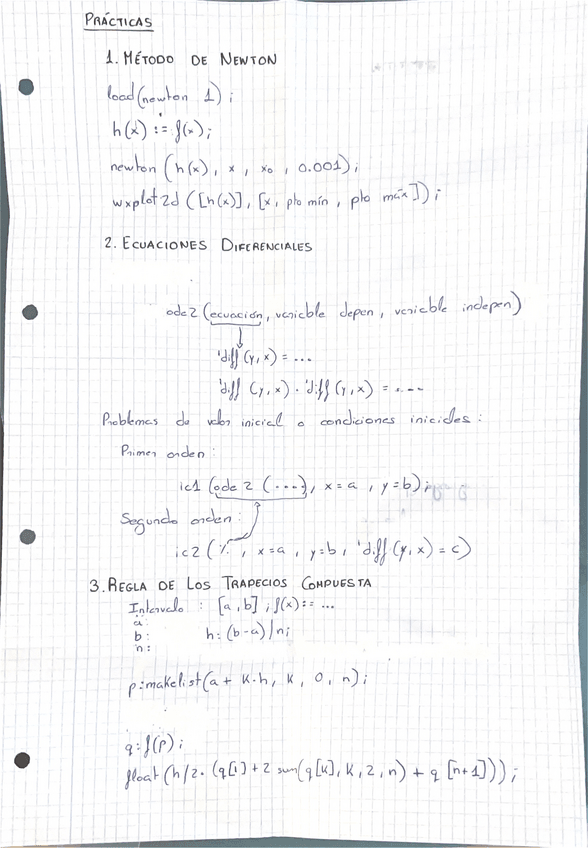 PRÁCTICAS
1. MÉTODO DE NEWTON
load(newton 1);
h(x) := f(x);
newton (h(x), x, x₀, 0.001);
wxplot2d ([h(x)], [x, pto mín, pto máx]);
2. ECUACIONES DIFERENCIALES
ode2 (ecuación, variable depen, variable indepen)
'diff (y,x) = ...
'diff (y,x) · 'diff (y,x) = ....
Problemas de valor inicial o condiciones iniciales :
Primer orden :
ic1 (ode 2 (....), x=a, y=b);
Segundo orden :
ic2 (%, x=a, y=b, 'diff (y,x) = c)
3. REGLA DE LOS TRAPECIOS COMPUESTA
Intervalo : [a,b] ; f(x):= ...
a:
b: h: (b-a)/n;
n:
p:makelist(a + k·h, k, 0, n);
q: f(p);
float (h/2· (q[1] + 2 sum(q[k], k, 2, n) + q [n+1]));